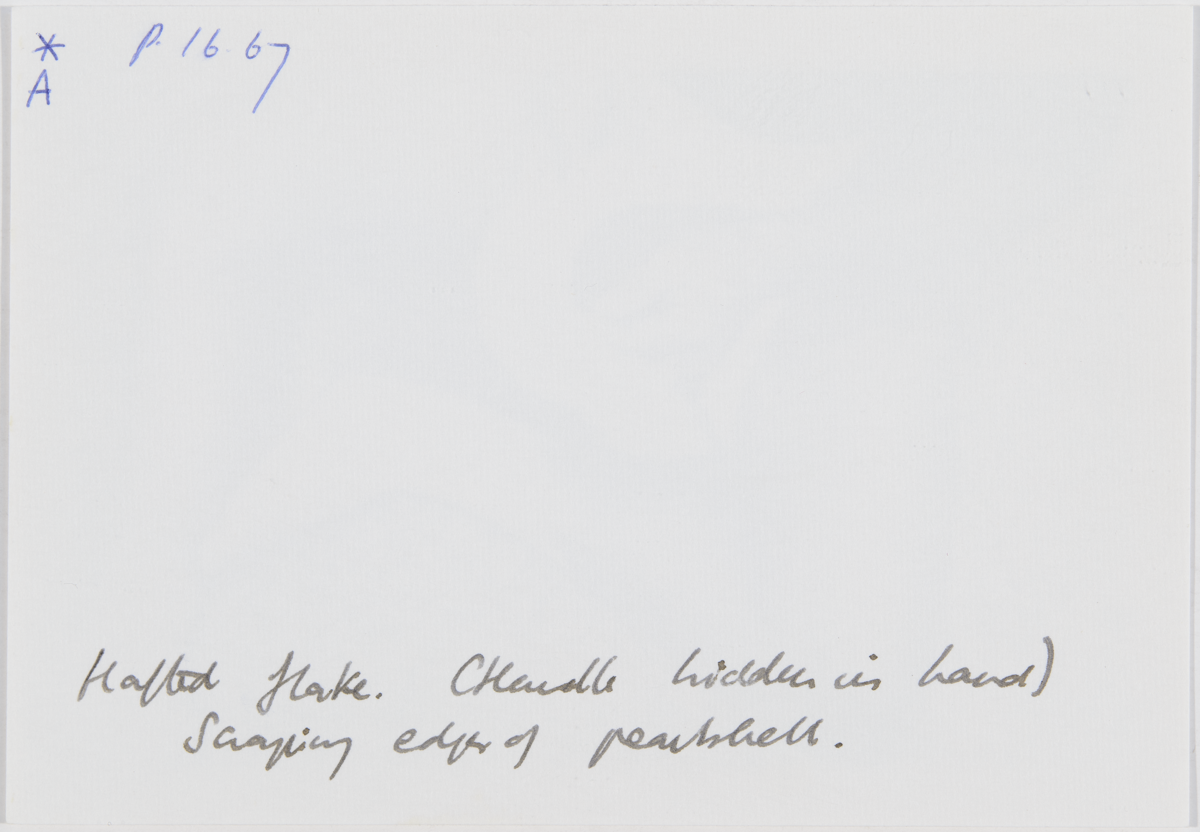 * P. 16. 67
A
Hafted flake. (Handle hidden in hand)
Scraping edge of pearlshell.